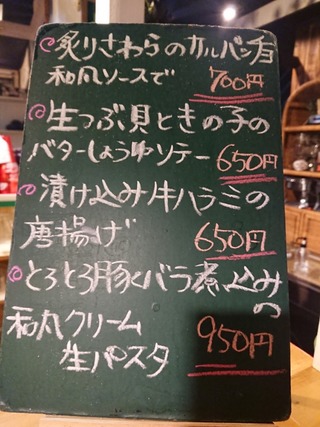 炙りさわらのカルパッチョ
和風ソースで 700円
生つぶ貝ときの子の
バターしょうゆソテー 650円
漬け込み牛ハラミの
唐揚げ 650円
とろとろ豚バラ煮込み
の
和風クリーム
生パスタ 950円